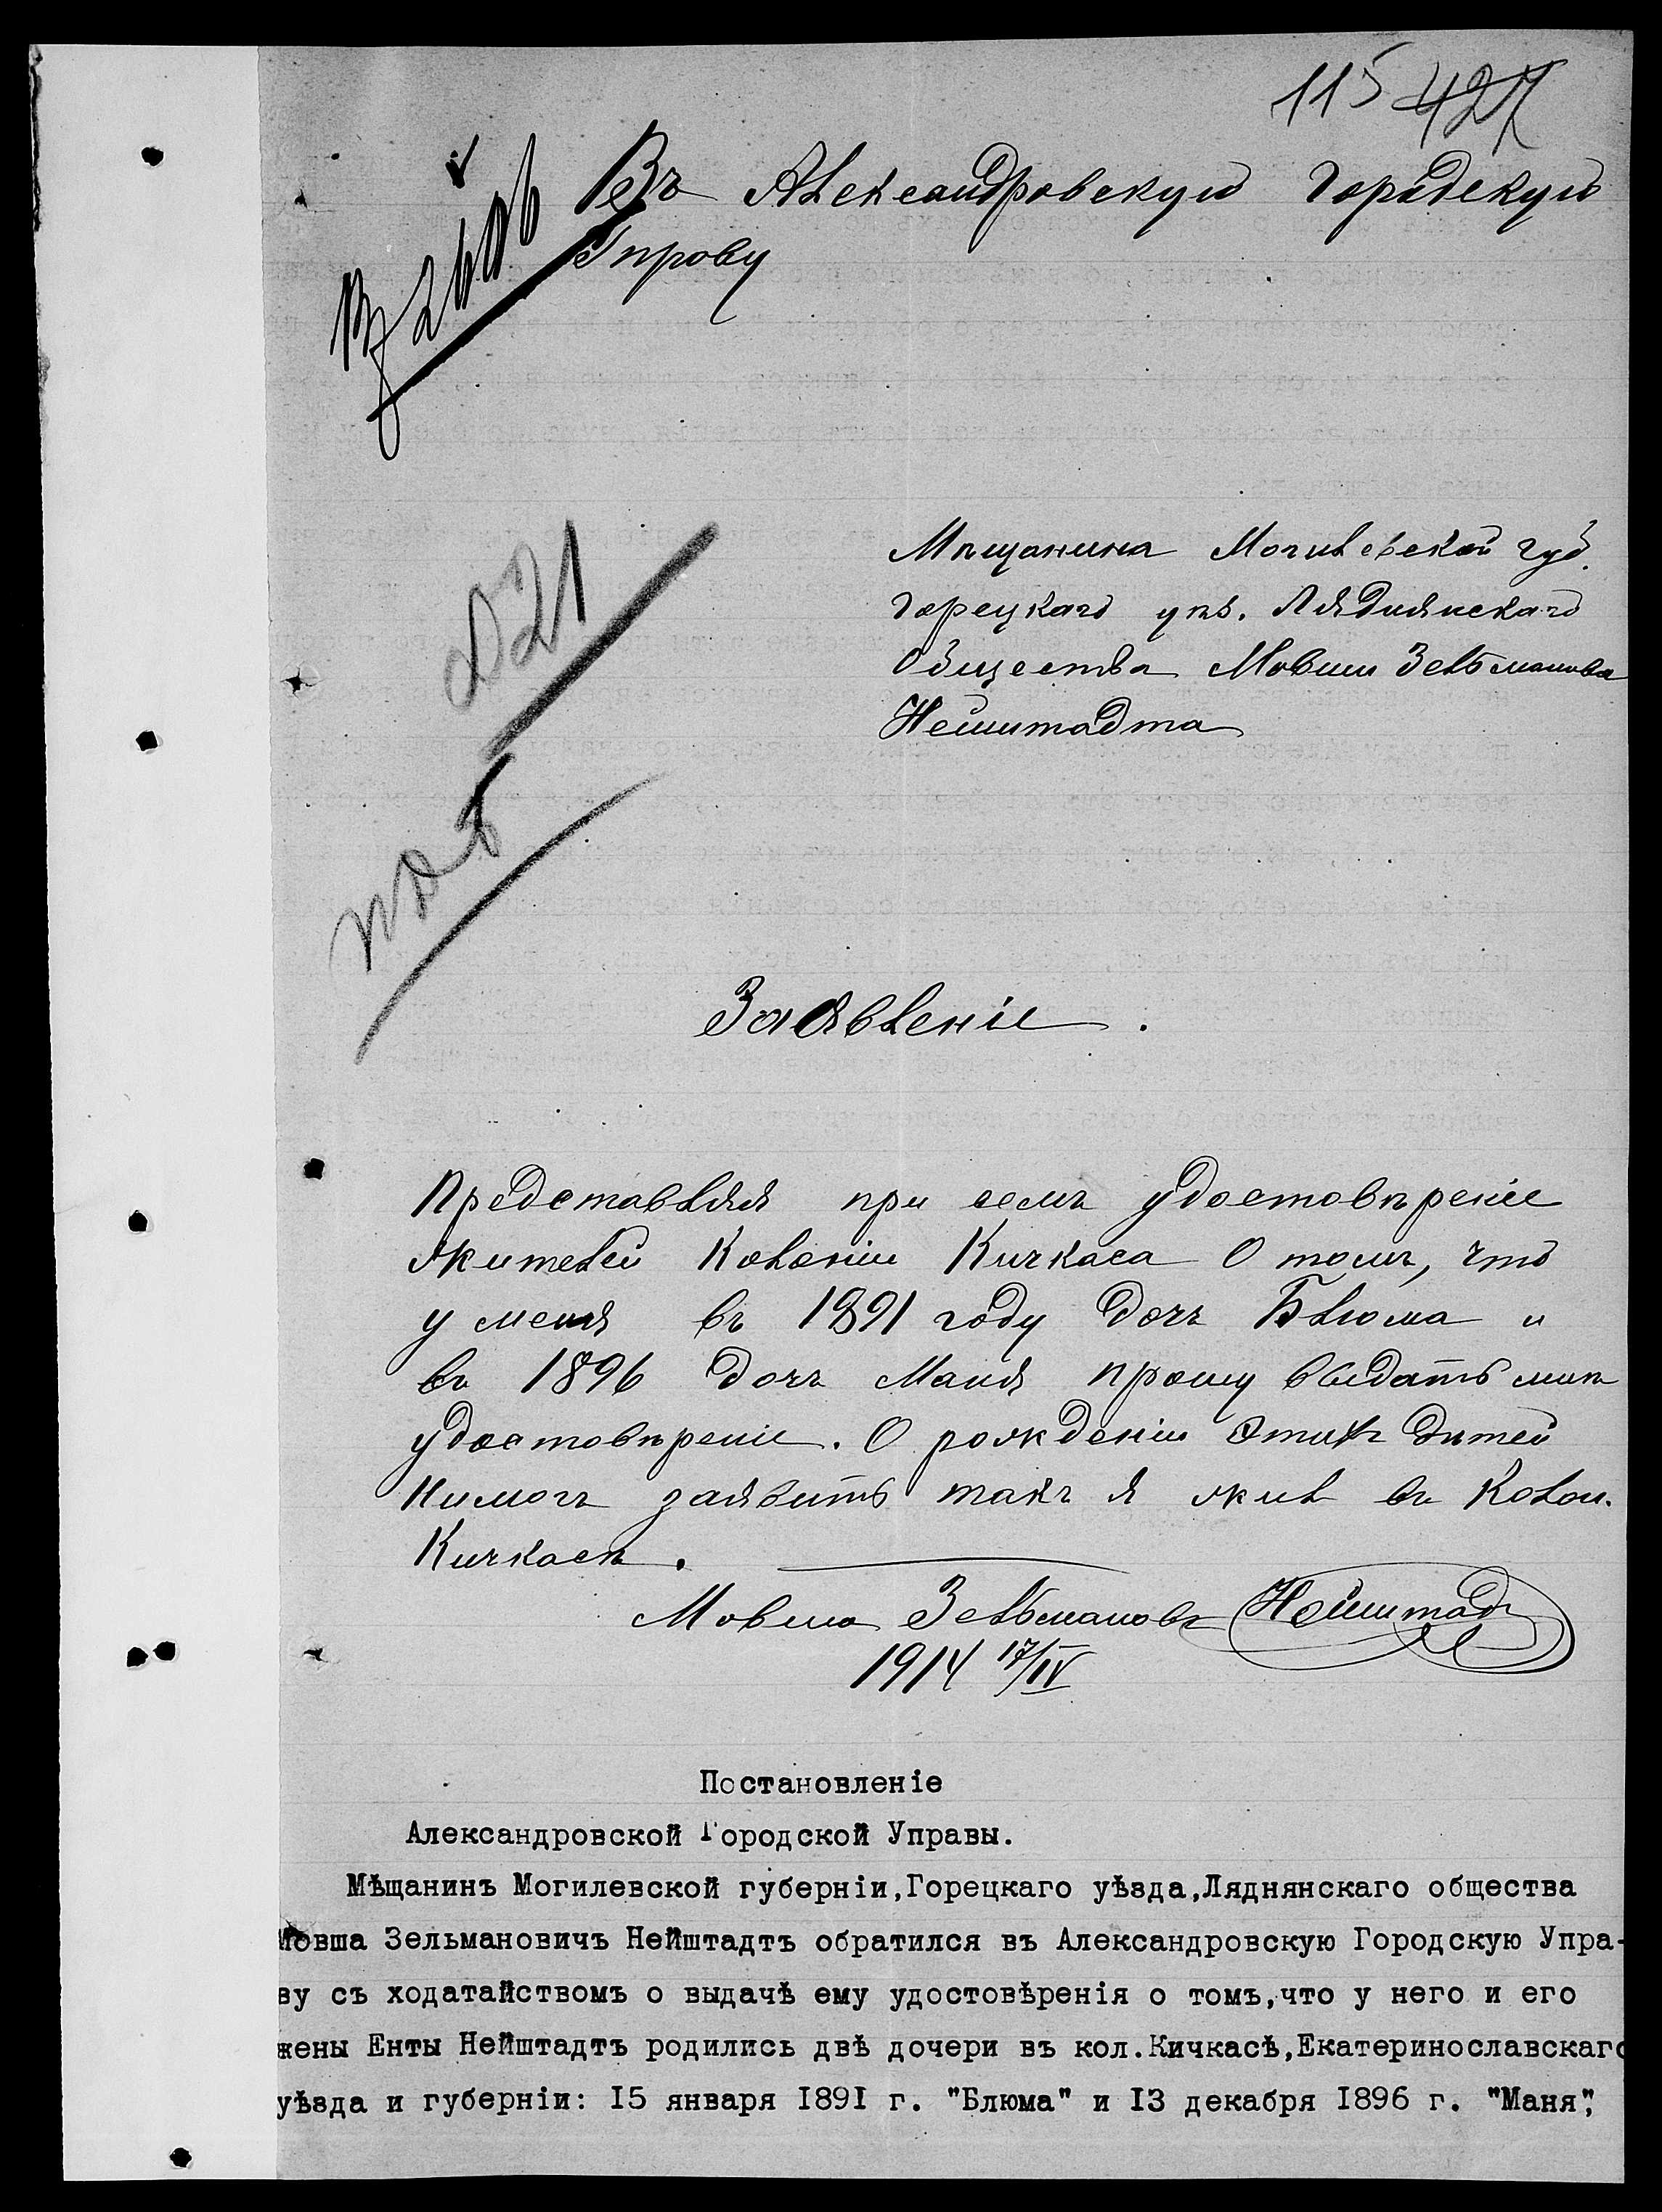 115 427
Въ Александровскую Городскую
Управу
Мѣщанина Могилевской губ.
Горецкаго уѣз. Ляднянскаго
Общества Мовши Зельманова
Нейштадта
Заявленіе.
Представляя при семъ удостовѣреніе
жителей Колоніи Кичкаса О томъ, что
у меня въ 1891 году дочъ Блюма и
въ 1896 дочъ Маня прошу выдать мнѣ
удостовѣреніе. О рожденіи этихъ дѣтей
Нимогъ заявить такъ я жилъ въ Колон.
Кичкасѣ.
Мовша Зельмановъ Нейштадъ
1914 17/IV
Постановленіе
Александровской Городской Управы.
Мѣщанинъ Могилевской губерніи,Горецкаго уѣзда,Ляднянскаго общества
Мовша Зельмановичъ Нейштадтъ обратился въ Александровскую Городскую Упра-
ву съ ходатайствомъ о выдачѣ ему удостовѣренія о томъ,что у него и его
жены Енты Нейштадтъ родились двѣ дочери въ кол.Кичкасѣ,Екатеринославскаго
уѣзда и губерніи: I5 января I89I г. "Блюма" и I3 декабря I896 г. "Маня",